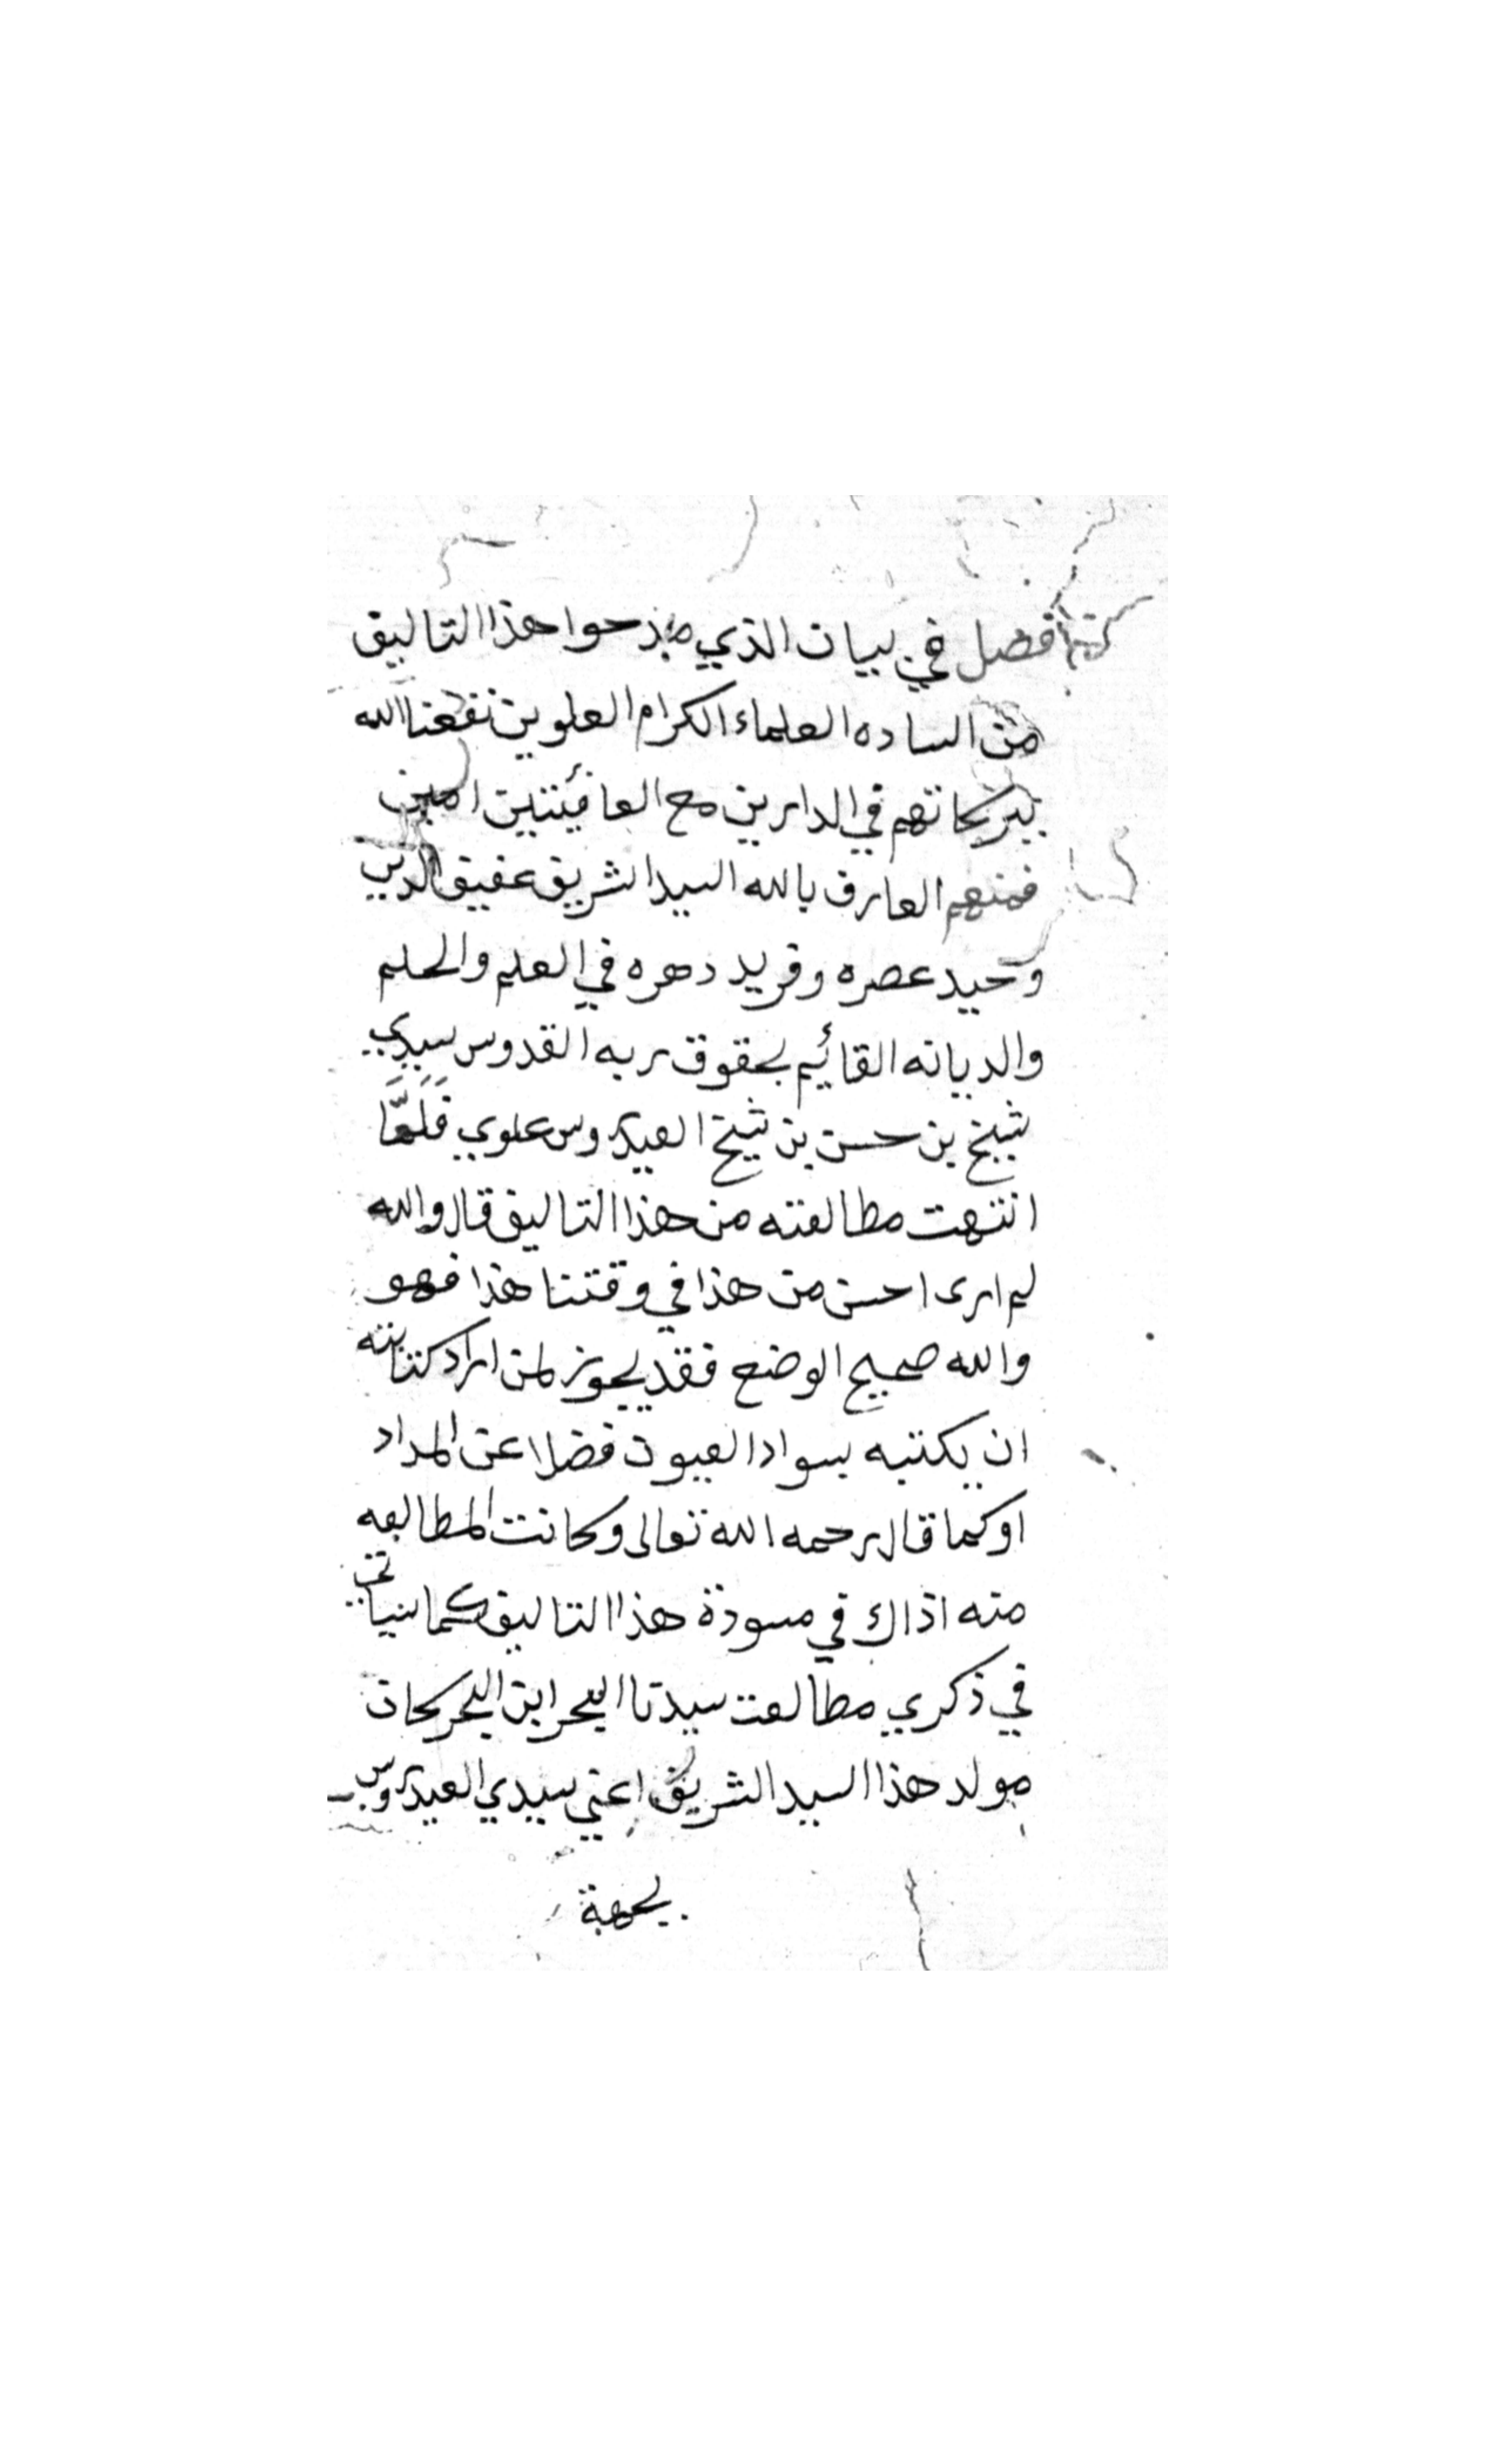 فصل في بيان الذي مدحوا هذا التاليف
من الساده العلماء الكرام العلوين نفعنا الله
ببركاتهم في الدارين مع العافئيتين امين
فمنهم العارف بالله السيد الشريف عفيف الدين
وحيد عصره وفريد دهره في العلم والحلم
والديانه القائيم بحقوق ربه القدوس سيدي
شيخ بن حسن بن شيخ العيدروس علوي فَلَمَّا
انتهت مطالعته من هذا التاليف قال والله
لم ارى احسن من هذا في وقتنا هذا فهو
والله صحيح الوضع فقد يجوز لمن اراد كتابته
ان يكتبه بسواد العيون فضلا عن المداد
اوكما قال رحمه الله تعالى وكانت المطالعه
منه اذاك في مسودة هذا التاليف كما سياتي
في ذكري مطالعت سيدنا البحر ابن البحر كان
مولد هذا السيد الشريف اعني سيدي العيدروس
بجهة